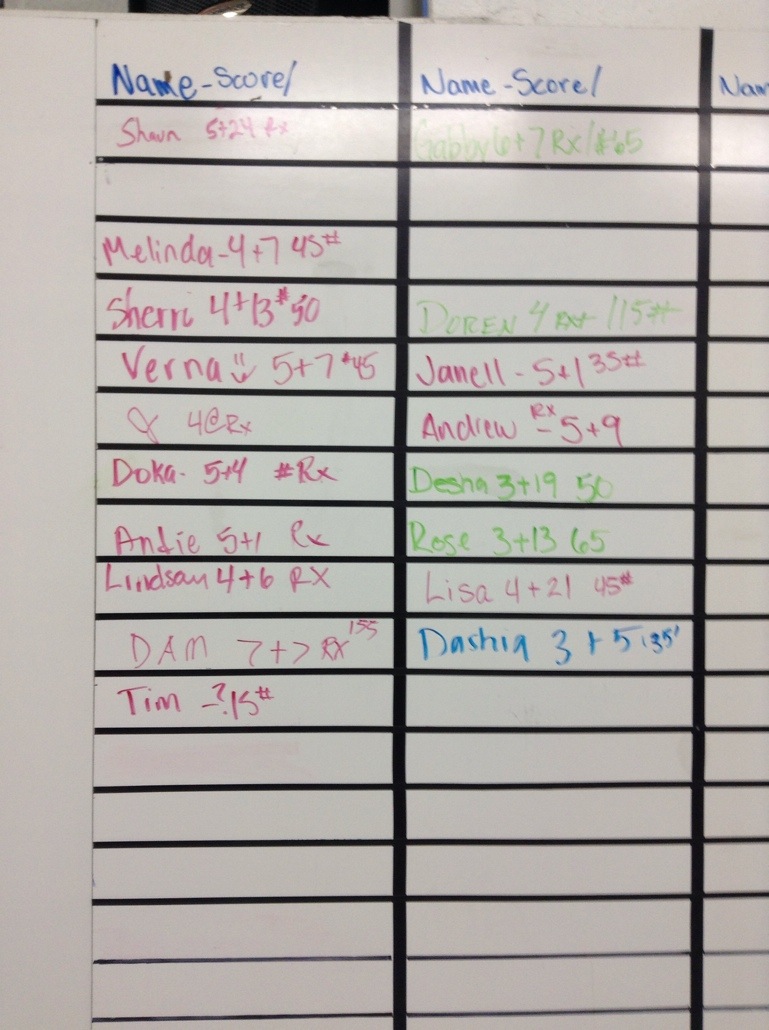 Name-Score/
Shaun 5+24 Rx
Melinda-4+7 45#
Sherri 4+13 #50
Verna 5+7 #45
4@Rx
Doka- 5+4 #Rx
Andie 5+1 Rx
Lindsay 4+6 RX
DAM 7+7 RX 155
Tim -?15#
Name-Score/
Gabby 6+7 Rx/#65
DOREN 4 115#
Janell - 5+1 35#
Andrew RX - 5+9
Desha 3+19 50
Rose 3+13 65
Lisa 4+21 45#
Dashia 3+5
Nam